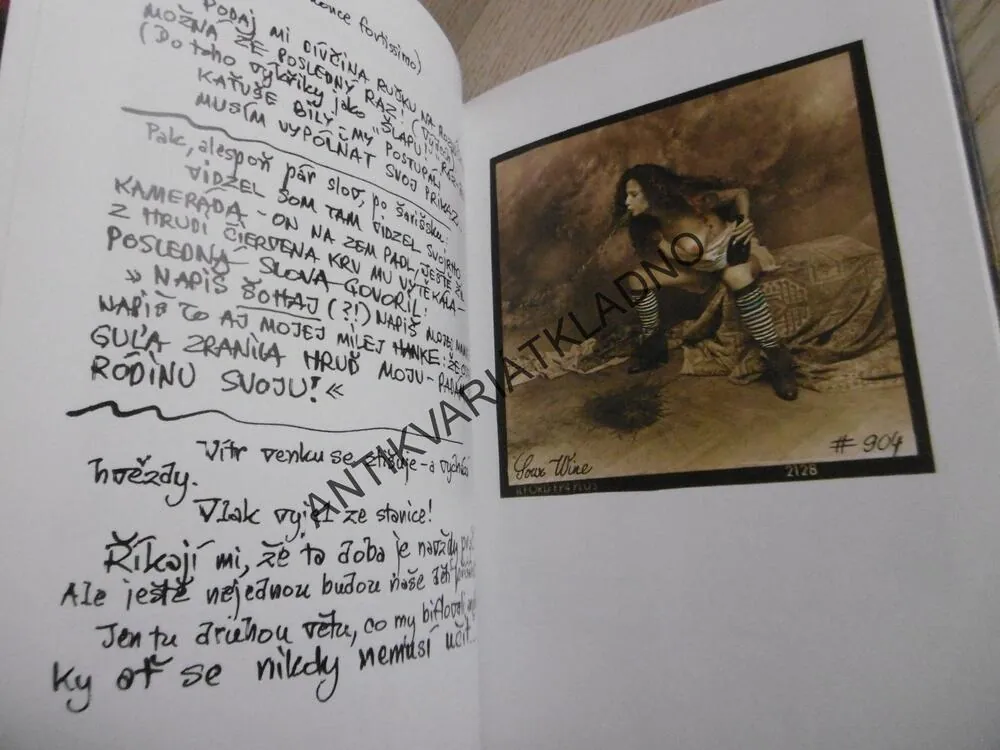 fortissimo)
PODAJ MI DIVČINA RUČKU NA
MOŽNÁ ŽE POSLEDNÝ RAZ!
(Do toho výkřiky jako "ŠLAPU!"
KAŤUŠE BÍLÝ - MY POSTUPALI
MUSÍM VYPÓLŇAT SVOJ PRÍKAZ.
Pak, alespoň pár slov, po šarišsku:
VIDZEL ŠOM TAM VIDZEL SVOJHO
KAMERÁDA - ON NA ZEM PADL, JEŠTĚ
Z HRUDI ČIERVENA KRV MU VYTĚKALA -
POSLEDNÁ SLOVA GOVORIL:
» NAPIŠ ŠOHAJ (?!) NAPIŠ MOJEJ
NAPIŠ TO AJ MOJEJ MILEJ HANKE: ŽE
GUĽA ZRANILA HRUĎ MOJU - PADÁM
RÓDINU SVOJU! «
Vítr venku se ztišuje - a vychází
hvězdy.
Vlak vyjel ze stanice!
Říkají mi, že ta doba je navždy
Ale ještě nejednou budou naše děti
Jen tu druhou větu, co my biflovali
ky ať se nikdy nemusí učit...
Sour Wine
# 904
ILFORD FP4 PLUS
2128
ANTIKVARIATKLADNO